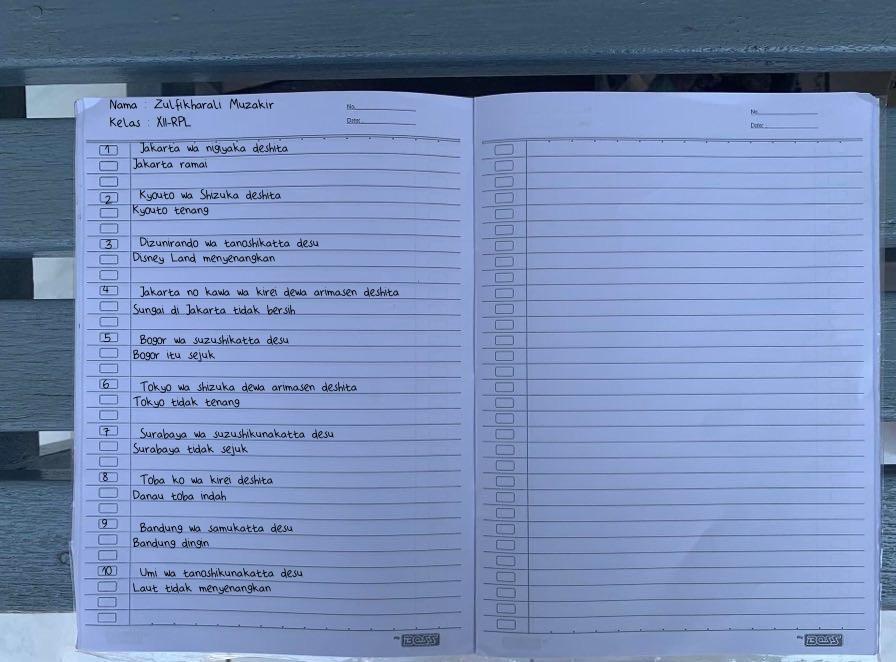 Nama : Zulfikharali Muzakir
No.
Kelas : XII-RPL
Date:
No.
Date:
1 Jakarta wa nigiyaka deshita
Jakarta ramai
2 Kyouto wa Shizuka deshita
Kyouto tenang
3 Dizunirando wa tanoshikatta desu
Disney Land menyenangkan
4 Jakarta no kawa wa kirei dewa arimasen deshita
Sungai di Jakarta tidak bersih
5 Bogor wa suzushikatta desu
Bogor itu sejuk
6 Tokyo wa shizuka dewa arimasen deshita
Tokyo tidak tenang
7 Surabaya wa suzushikunakatta desu
Surabaya tidak sejuk
8 Toba ko wa kirei deshita
Danau toba indah
9 Bandung wa samukatta desu
Bandung dingin
10 Umi wa tanoshikunakatta desu
Laut tidak menyenangkan
BOSS
BOSS